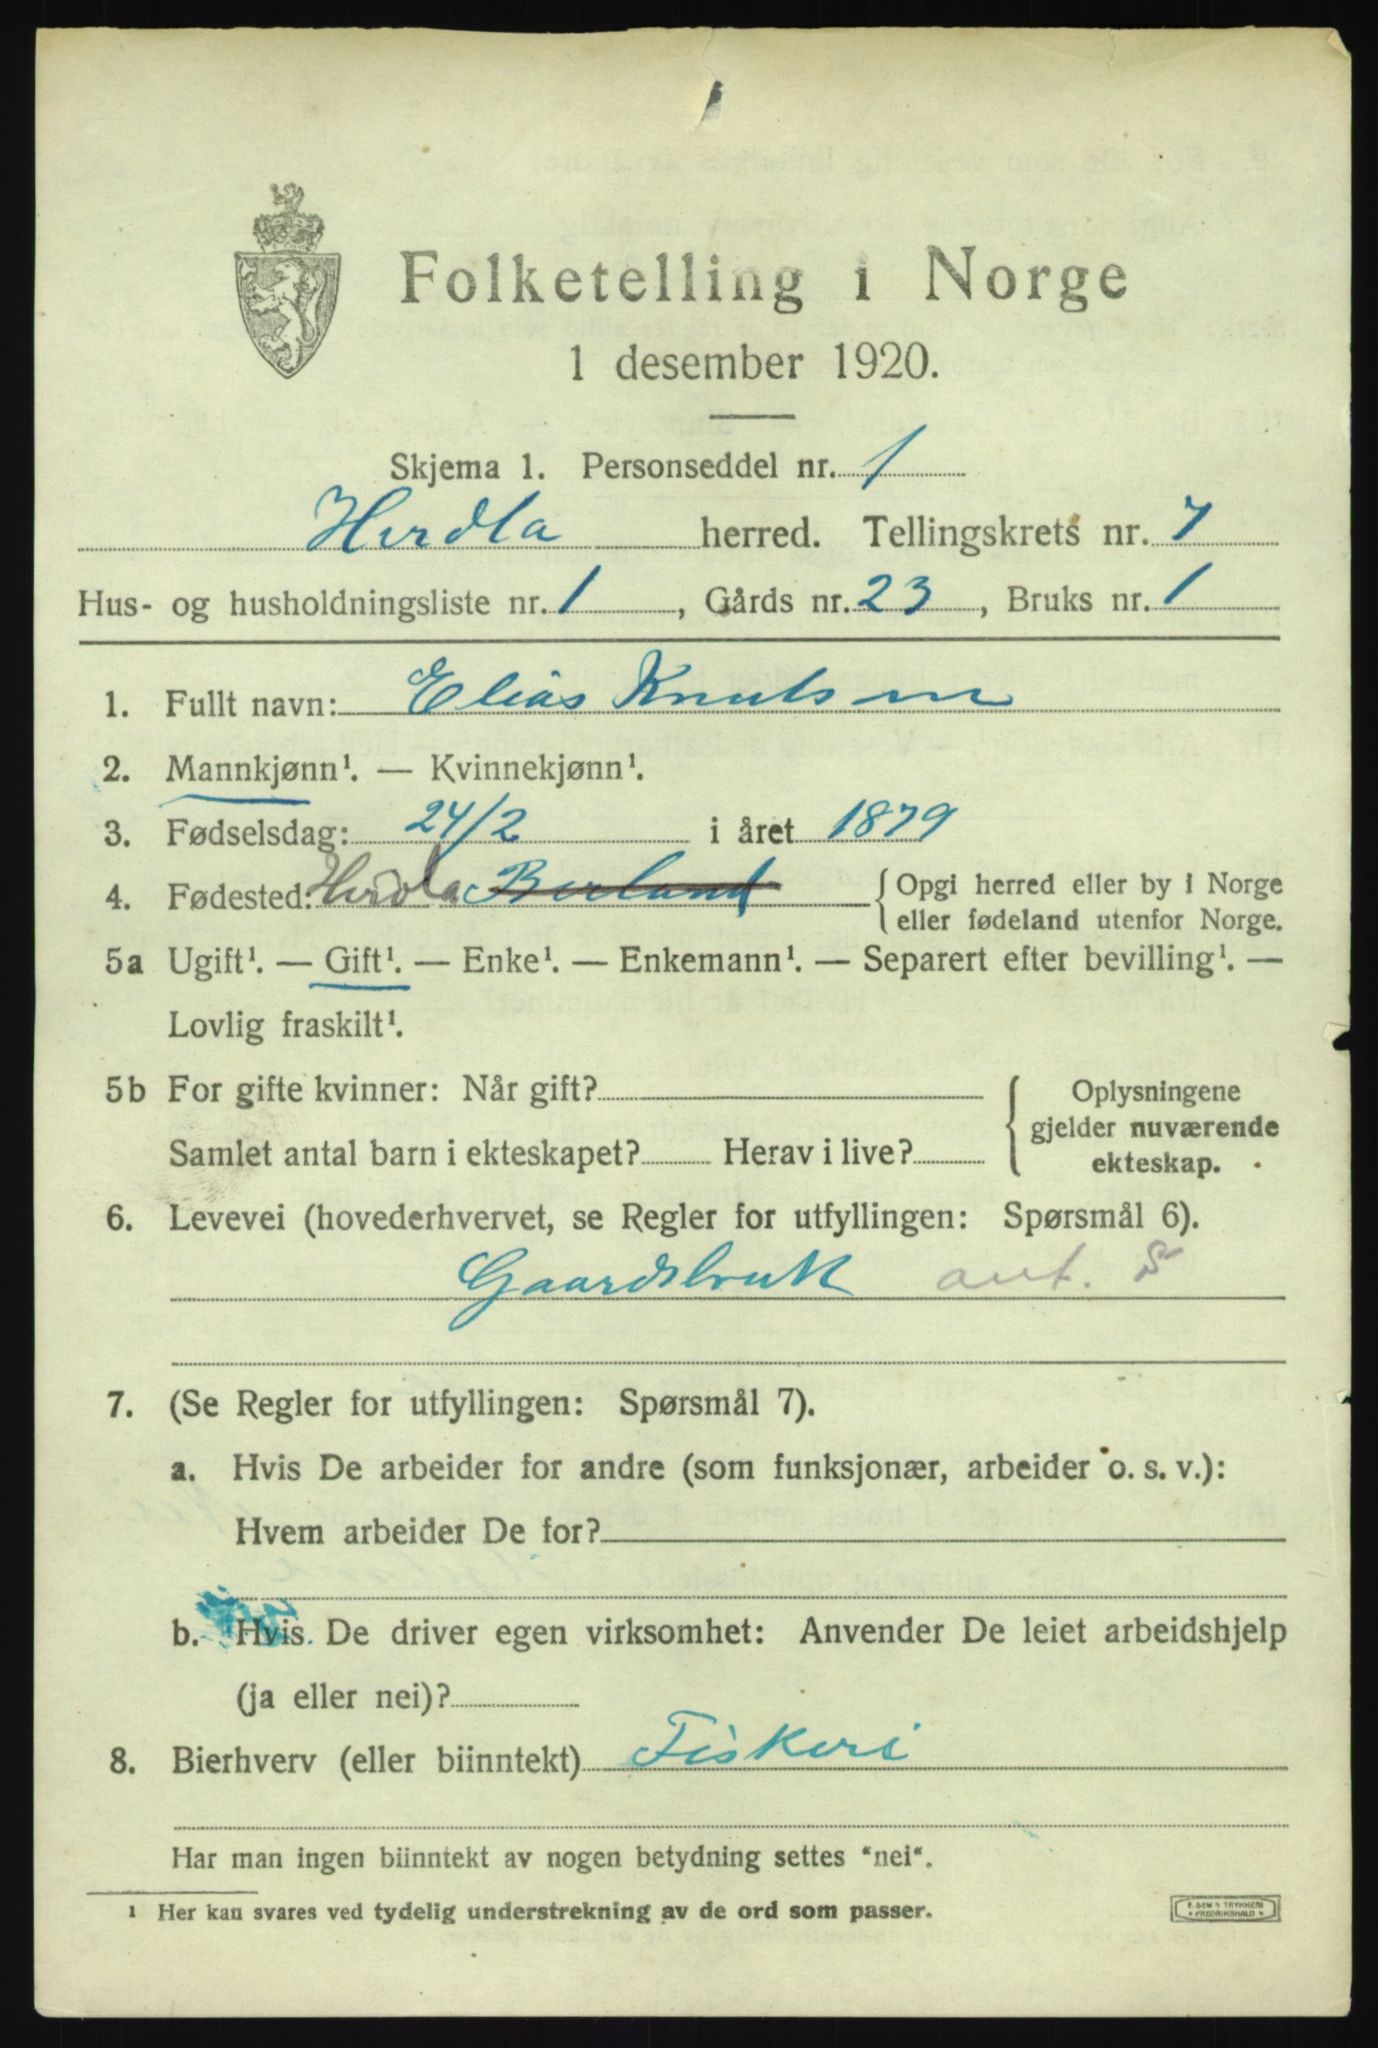 Folketelling i Norge
1 desember 1920.
Skjema 1. Personseddel nr. 1
Herdla herred. Tellingskrets nr. 7
Hus- og husholdningsliste nr. 1, Gårds nr. 23, Bruks nr. 1
1. Fullt navn: Elias Knutsen
2. Mannkjønn¹. — Kvinnekjønn¹.
3. Fødselsdag: 24/2 i året 1879
4. Fødested: Herdla Berland { Opgi herred eller by i Norge
eller fødeland utenfor Norge.
5a Ugift¹. — Gift¹. — Enke¹. — Enkemann¹. — Separert efter bevilling¹. —
Lovlig fraskilt¹.
5b For gifte kvinner: Når gift? { Oplysningene
gjelder nuværende
Samlet antal barn i ekteskapet? Herav i live? ekteskap.
6. Levevei (hovederhvervet, se Regler for utfyllingen: Spørsmål 6).
Gaardsbruk ant. S
7. (Se Regler for utfyllingen: Spørsmål 7).
a. Hvis De arbeider for andre (som funksjonær, arbeider o. s. v.):
Hvem arbeider De for?
b. Hvis De driver egen virksomhet: Anvender De leiet arbeidshjelp
(ja eller nei)?
8. Bierhverv (eller biinntekt) Fiskeri
Har man ingen biinntekt av nogen betydning settes "nei".
1 Her kan svares ved tydelig understrekning av de ord som passer.
E. SEM'S TRYKKERI
FREDRIKSHALD